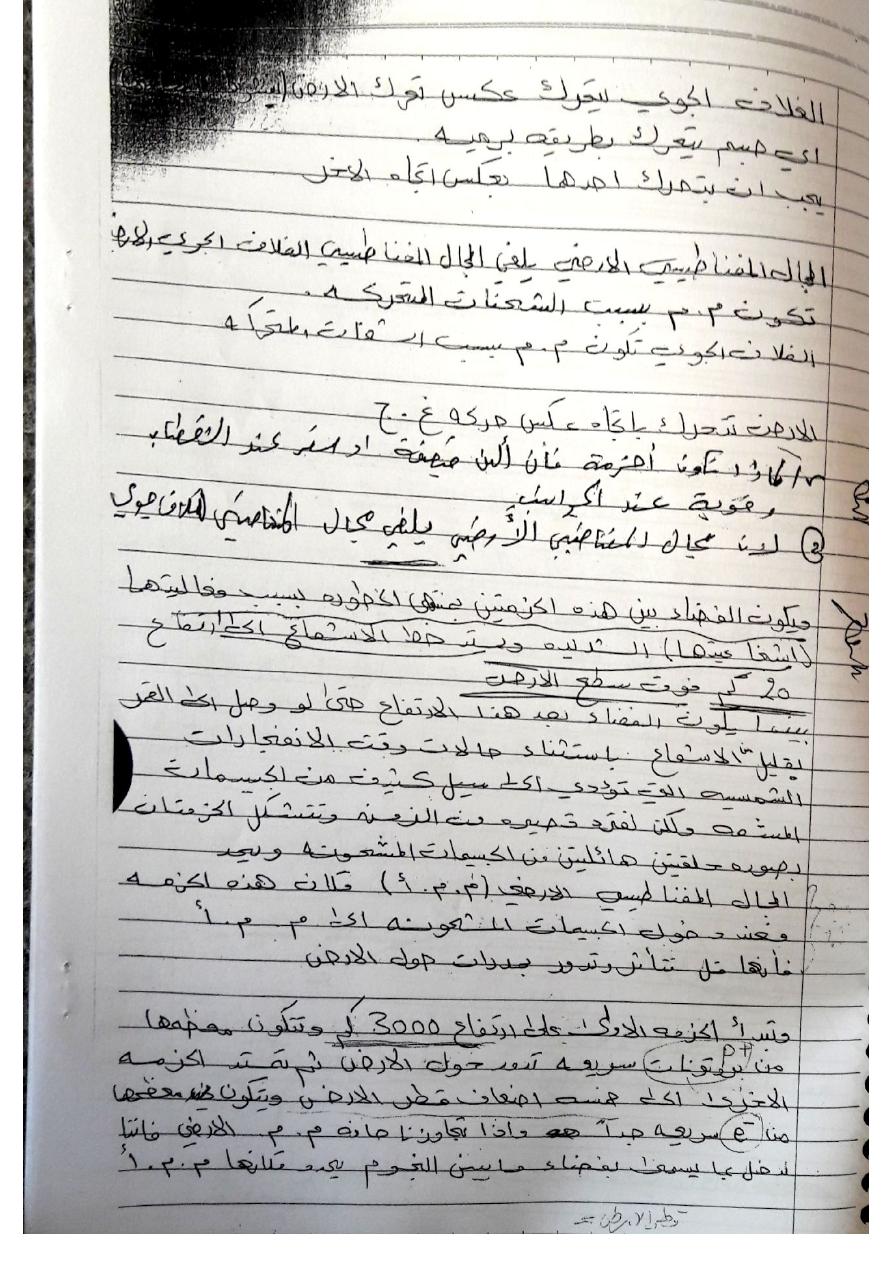 الغلاف الجوي يتحرك عكس تحرك الارض
اي جسم يتحرك بطريقه
يجب ان يتحرك احدها بعكس اتجاه الاخر
المجال المغناطيسي الارضي يلغي المجال المغناطيسي الغلاف الجوي
تكون م.م بسبب الشحنات المتحركه.
الغلاف الجوي تكون م.م بسبب المتحركه
الارض تتحرك باتجاه عكس حركه غ.ج
تكون أحزمة فان ألين ضعيفة او صفر عند
وقوية عند
② لان مجال المغناطيسي الأرضي يلغي مجال المغناطيسي
ويكون الفضاء بين هذه الحزمتين بمنتهى الخطوره بسبب فعاليتها
(اشعاعيتها) الشديده ويمتد خط الاشعاع الى ارتفاع
20 كم فوق سطح الارض
بينما يكون الفضاء بعد هذا الارتفاع حتى لو وصل الى القمر
بقليل الاشعاع باستثناء حالات وقت الانفجارات
الشمسيه التي تؤدي الى سيل كثيف من الجسيمات
المشعه ولكن لفتره قصيره من الزمنه وتتشكل الحزمتان
بصوره حلقتين هائلتين من الجسيمات المشحونه ويحدد
المجال المغناطيسي الارضي (م.م.أ) مكان هذه الحزمه
فعند دخول الجسيمات المشحونه الى م.م.أ
فأنها تتأثر وتدور بمدارات حول الارض
وتبدأ الحزمه الاولى على ارتفاع 3000 كم وتتكون معظمها
من بروتونات P+ سريعه تدور حول الارض ثم تمتد الحزمه
الاخرى الى خمسه اضعاف قطر الارض ويتكون معظمها
من e- سريعه جداً واذا تجاوزنا م.م الارضي فاننا
ندخل بما يسمى بفضاء ما بين النجوم يحدد مكانها م.م.أ
قطر الارض =